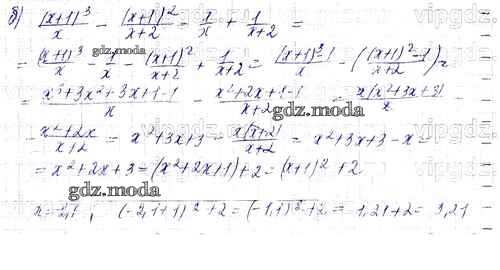 б) (x+1)³/x − (x+1)²/(x+2) − 1/x + 1/(x+2) =
= (x+1)³/x − 1/x − (x+1)²/(x+2) + 1/(x+2) = ((x+1)³−1)/x − ((x+1)²−1)/(x+2) =
= (x³+3x²+3x+1−1)/x − (x²+2x+1−1)/(x+2) = x(x²+3x+3)/x
− (x²+2x)/(x+2) = x²+3x+3 − x(x+2)/(x+2) = x²+3x+3−x =
= x²+2x+3 = (x²+2x+1)+2 = (x+1)²+2
x=−2,1; (−2,1+1)²+2 = (−1,1)²+2 = 1,21+2 = 3,21
gdz.moda
gdz.moda
gdz.moda
gdz.moda
vipgdz
vipgdz